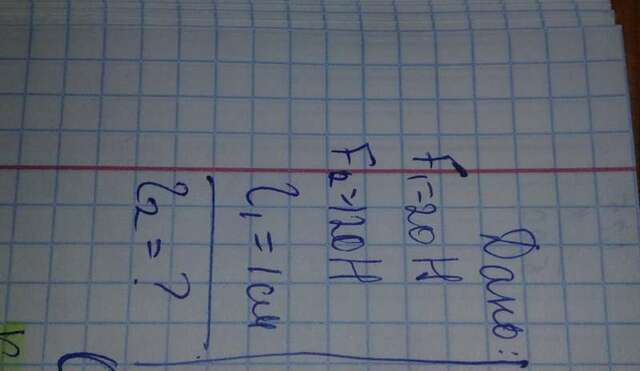 Дано:
F₁=20 Н
F₂=120 Н
l₁=1 см
l₂=?